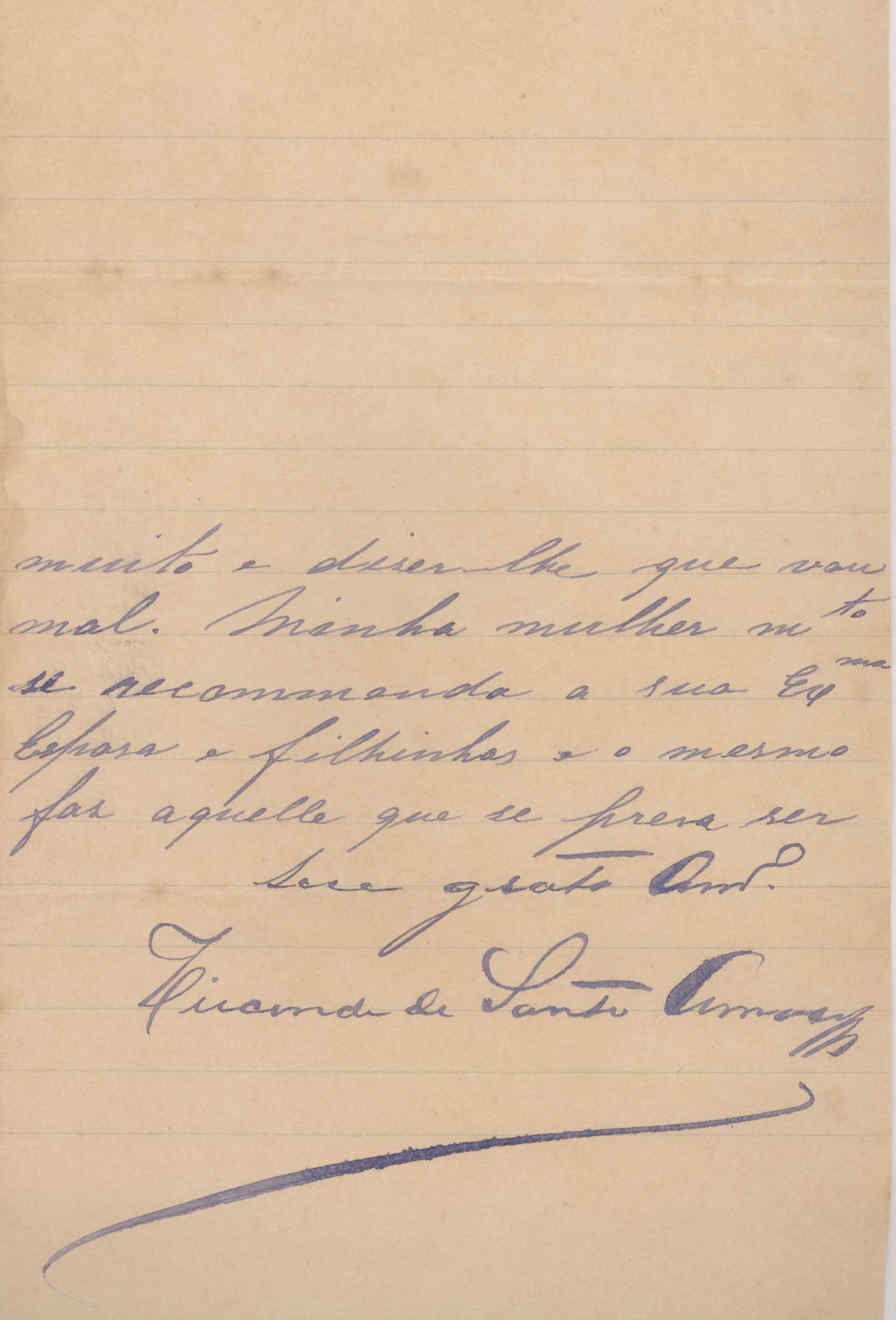 muito e diser-lhe que vou
mal. Minha mulher m^to
se recommenda a sua Ex^ma
Esposa e filhinhos e o mesmo
faz aquelle que se presa ser
seu grato Am^o.
Visconde de Santo Amaro